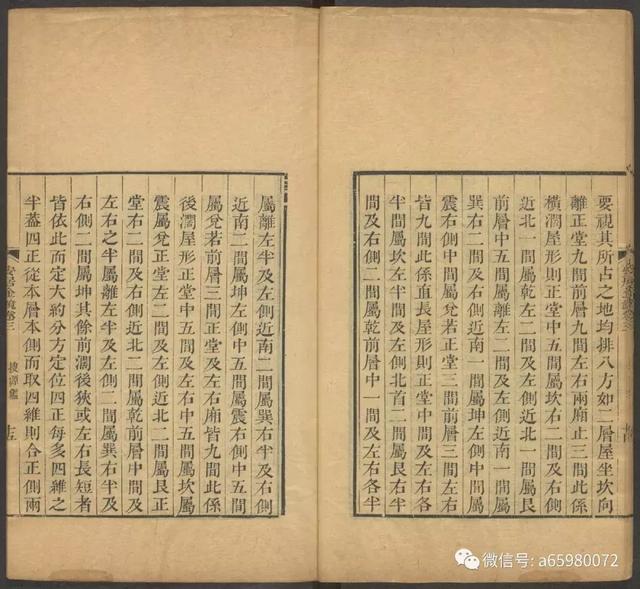 要視其所占之地均排八方如二層屋坐坎向
離正堂九間前層九間左右兩廂止三間此係
橫濶屋形則正堂中五間屬坎右二間及右側
近北一間屬乾左二間及左側近北一間屬艮
前層中五間屬離左二間及左側近南一間屬
巽右二間及右側近南一間屬坤左側中間屬
震右側中間屬兌若正堂三間前層三間左右
皆九間此係直長屋形則正堂中一間及左右
半間屬坎左半間及左側北首二間屬艮右半
間及右側二間屬乾前層中一間及左右各半
屬離左半及左側近南二間屬巽右半及右側
近南二間屬坤左側中五間屬震右側中五間
屬兌若前層三間正堂九間及左右廂皆九間此係
後濶屋形正堂中五間及左右五間屬坎屬
震屬兌正堂左二間及左側近北二間屬艮正
堂右二間及右側近北二間屬乾前層中間及
左右之半屬離左半及左側二間屬巽右半及
右側二間屬坤其餘前濶後狹或左右長短者
皆依此而定大約分方定位四正每多四維之
半蓋四正從本層本側而取四維則合正側兩
安居金鏡卷三
披源鑑
十五
微信号: a65980072